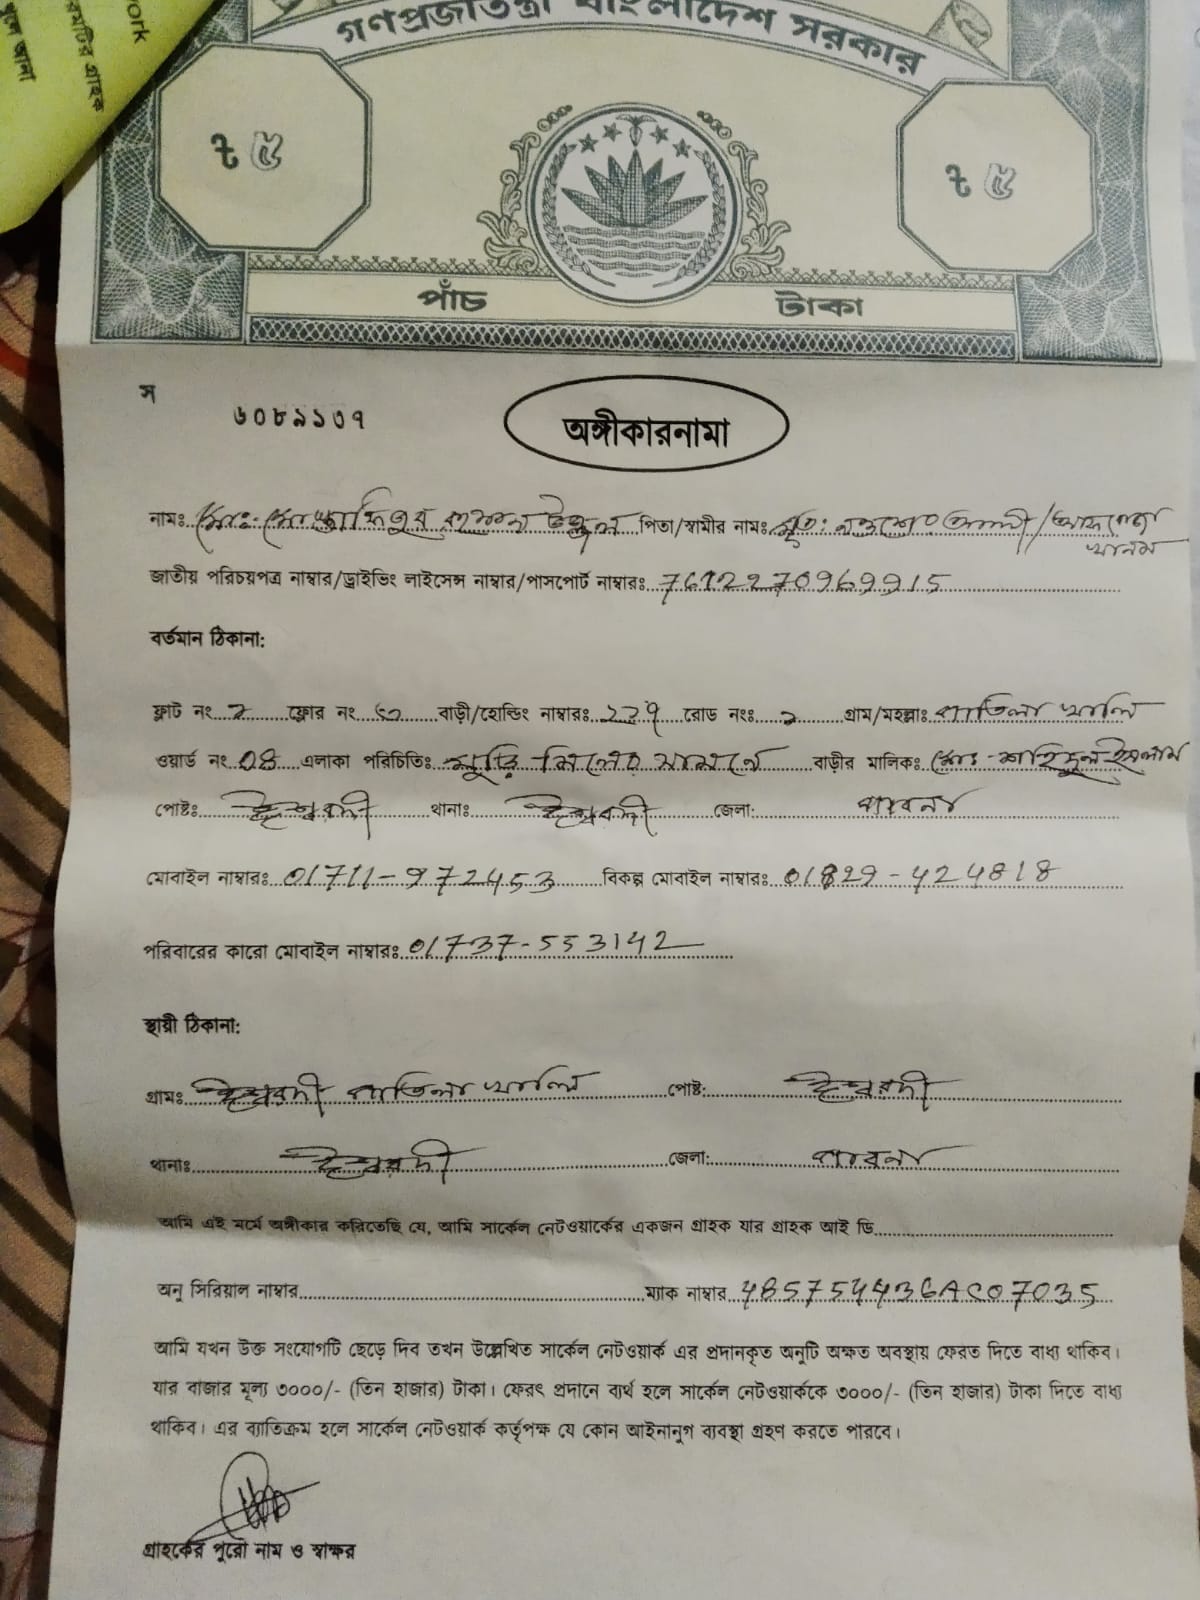 গণপ্রজাতন্ত্রী বাংলাদেশ সরকার
৳ ৫
৳ ৫
পাঁচ টাকা
স
৬০৮৯১৩৭
অঙ্গীকারনামা
নামঃ মোঃ পিতা/স্বামীর নামঃ মৃত: আলী/ খানম
জাতীয় পরিচয়পত্র নাম্বার/ড্রাইভিং লাইসেন্স নাম্বার/পাসপোর্ট নাম্বারঃ 7612270969915
বর্তমান ঠিকানা:
ফ্লাট নং ২ ফ্লোর নং ৩ বাড়ী/হোল্ডিং নাম্বারঃ ২২৭ রোড নংঃ ১ গ্রাম/মহল্লাঃ পাতিলা খালি
ওয়ার্ড নং 04 এলাকা পরিচিতিঃ মিলের সামনে বাড়ীর মালিকঃ মোঃ শহিদুল ইসলাম
পোষ্টঃ ঈশ্বরদী থানাঃ ঈশ্বরদী জেলা: পাবনা
মোবাইল নাম্বারঃ 01711-972453 বিকল্প মোবাইল নাম্বারঃ 01829-424818
পরিবারের কারো মোবাইল নাম্বারঃ 01737-553142
স্থায়ী ঠিকানা:
গ্রামঃ ঈশ্বরদী পাতিলা খালি পোষ্ট: ঈশ্বরদী
থানাঃ ঈশ্বরদী জেলা: পাবনা
আমি এই মর্মে অঙ্গীকার করিতেছি যে, আমি সার্কেল নেটওয়ার্কের একজন গ্রাহক যার গ্রাহক আই ডি
অনু সিরিয়াল নাম্বার ম্যাক নাম্বার 485754436AC07035
আমি যখন উক্ত সংযোগটি ছেড়ে দিব তখন উল্লেখিত সার্কেল নেটওয়ার্ক এর প্রদানকৃত অনুটি অক্ষত অবস্থায় ফেরত দিতে বাধ্য থাকিব।
যার বাজার মূল্য ৩০০০/- (তিন হাজার) টাকা। ফেরৎ প্রদানে ব্যর্থ হলে সার্কেল নেটওয়ার্ককে ৩০০০/- (তিন হাজার) টাকা দিতে বাধ্য
থাকিব। এর ব্যাতিক্রম হলে সার্কেল নেটওয়ার্ক কর্তৃপক্ষ যে কোন আইনানুগ ব্যবস্থা গ্রহণ করতে পারবে।
গ্রাহকের পুরো নাম ও স্বাক্ষর